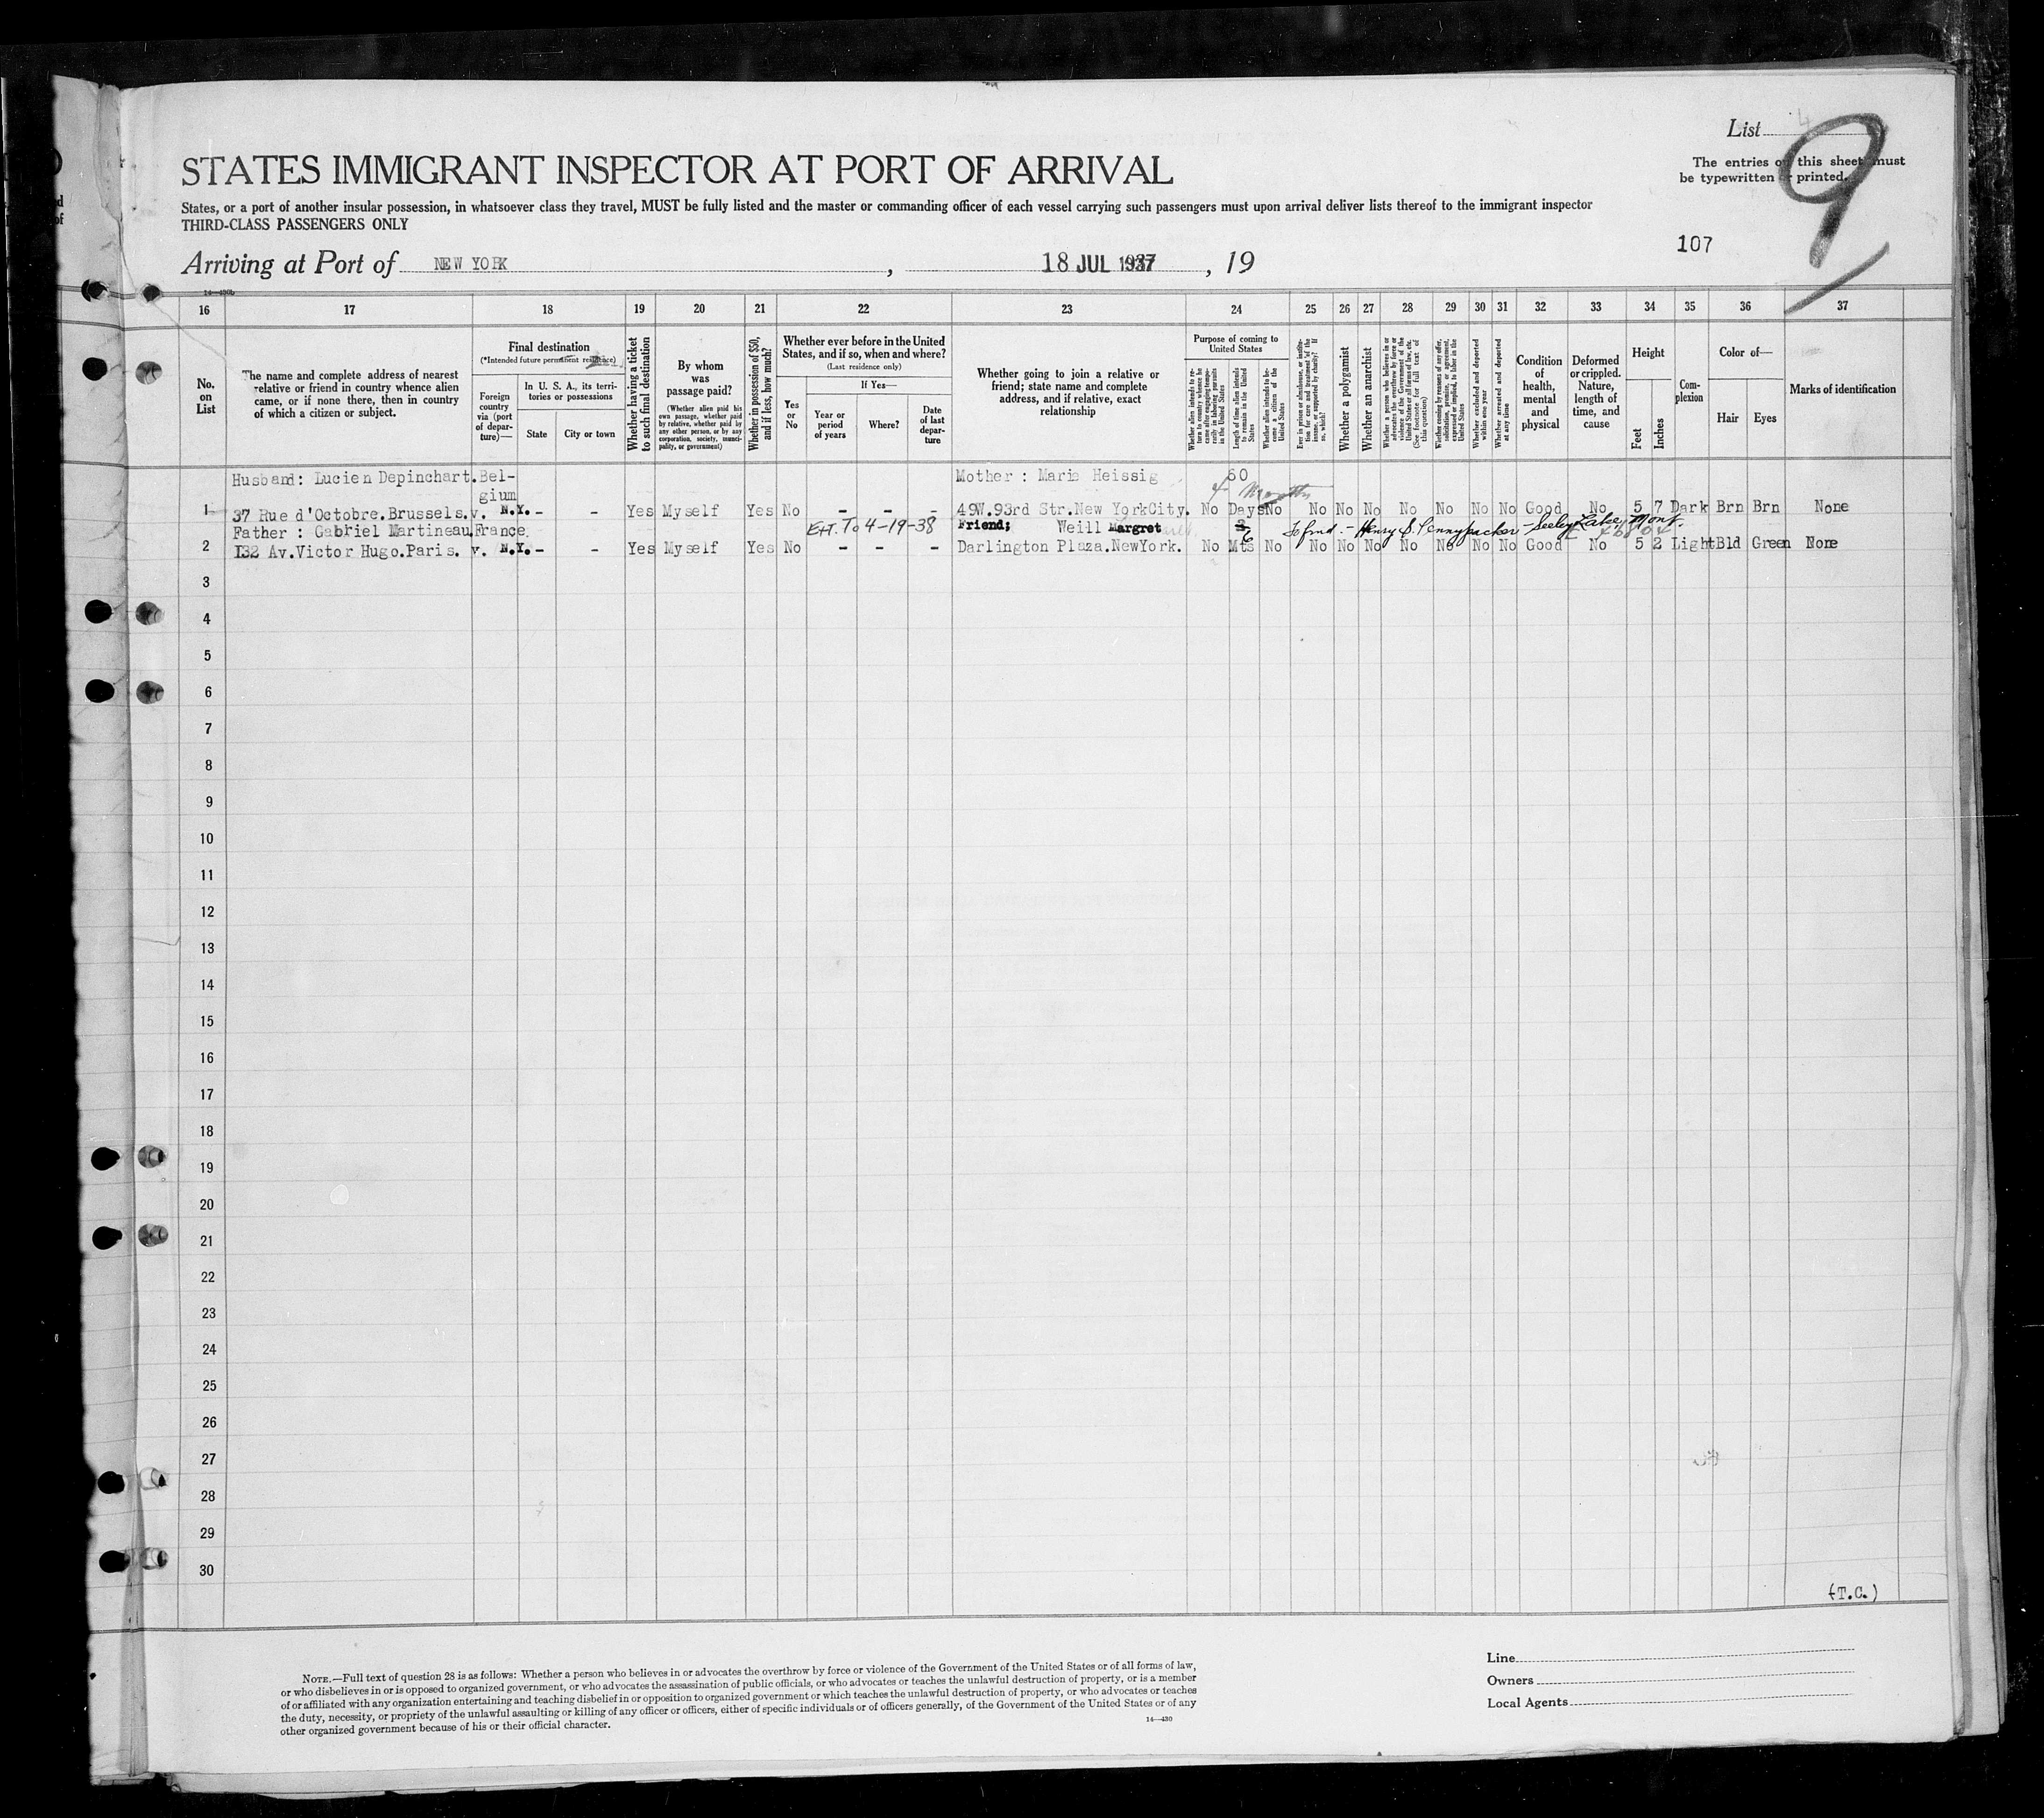 List
4
9
The entries on this sheet must
be typewritten or printed.
STATES IMMIGRANT INSPECTOR AT PORT OF ARRIVAL
States, or a port of another insular possession, in whatsoever class they travel, MUST be fully listed and the master or commanding officer of each vessel carrying such passengers must upon arrival deliver lists thereof to the immigrant inspector
THIRD-CLASS PASSENGERS ONLY
107
Arriving at Port of NEW YORK , 18 JUL 1937 , 19
14—430b
16 17 18 19 20 21 22 23 24 25 26 27 28 29 30 31 32 33 34 35 36 37
No.
on
List
The name and complete address of nearest
relative or friend in country whence alien
came, or if none there, then in country
of which a citizen or subject.
Final destination
(*Intended future permanent residence)
Foreign
country
via (port
of depar-
ture)—
In U. S. A., its terri-
tories or possessions
State
City or town
Whether having a ticket
to such final destination
By whom
was
passage paid?
(Whether alien paid his
own passage, whether paid
by relative, whether paid by
any other person, or by any
corporation, society, munici-
pality, or government)
Whether in possession of $50,
and if less, how much?
Whether ever before in the United
States, and if so, when and where?
(Last residence only)
Yes
or
No
If Yes—
Year or
period
of years
Where?
Date
of last
depar-
ture
Whether going to join a relative or
friend; state name and complete
address, and if relative, exact
relationship
Purpose of coming to
United States
Whether alien intends to re-
turn to country whence he
came after engaging tempo-
rarily in laboring pursuits
in the United States
Length of time alien intends
to remain in the United
States
Whether alien intends to be-
come a citizen of the
United States
Ever in prison or almshouse, or institu-
tion for care and treatment of the
insane, or supported by charity? If
so, which?
Whether a polygamist
Whether an anarchist
Whether a person who believes in or
advocates the overthrow by force or
violence of the Government of the
United States or all forms of law, etc.
(See footnote for full text of
this question)
Whether coming by reasons of any offer,
solicitation, promise, or agreement,
expressed or implied, to labor in the
United States
Whether excluded and deported
within one year
Whether arrested and deported
at any time
Condition
of
health,
mental
and
physical
Deformed
or crippled.
Nature,
length of
time, and
cause
Height
Feet
Inches
Com-
plexion
Color of—
Hair
Eyes
Marks of identification
Husband: Lucien Depinchart. Bel- Mother : Maria Heissig 60
gium 4 Months
1 37 Rue d'Octobre.Brussels. v. N.Y. - - Yes Myself Yes No - - - 49W.93rd Str.New YorkCity. No Days No No No No No No No No Good No 5 7 Dark Brn Brn None
Father : Gabriel Martineau. France Ext. To 4-19-38 Friend; Weill Margret 3 6 To frnd. - Henry S. Pennypacker - Seeley Lake, Mont.
2 132 Av.Victor Hugo.Paris. v. N.Y. - - Yes Myself Yes No - - - Darlington Plaza.NewYork. No Mts No No No No No No No No Good No 5 2 Light Bld Green None
3
4
5
6
7
8
9
10
11
12
13
14
15
16
17
18
19
20
21
22
23
24
25
26
27
28
29
30
(T.C.)
NOTE.—Full text of question 28 is as follows: Whether a person who believes in or advocates the overthrow by force or violence of the Government of the United States or of all forms of law,
or who disbelieves in or is opposed to organized government, or who advocates the assassination of public officials, or who advocates or teaches the unlawful destruction of property, or is a member
of or affiliated with any organization entertaining and teaching disbelief in or opposition to organized government or which teaches the unlawful destruction of property, or who advocates or teaches
the duty, necessity, or propriety of the unlawful assaulting or killing of any officer or officers, either of specific individuals or of officers generally, of the Government of the United States or of any
other organized government because of his or their official character.
14—430
Line
Owners
Local Agents